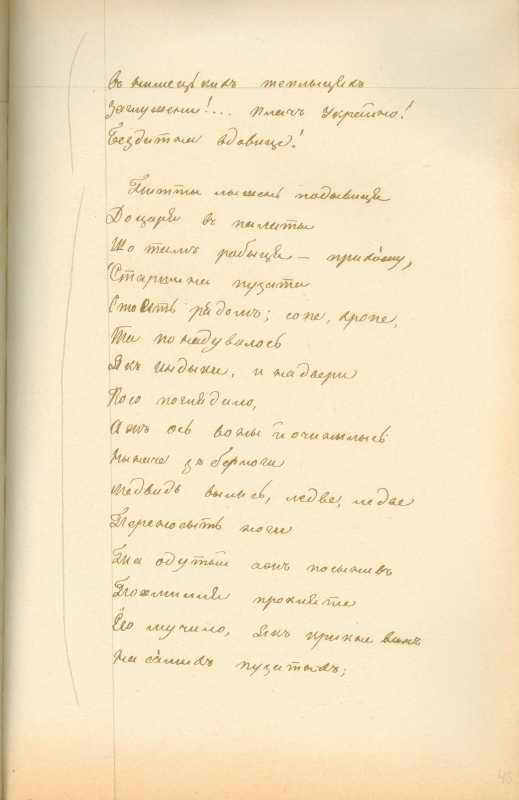 въ нимецькихъ теплыцяхъ
Заглушени!... плачъ Украйно!
Бездитна вдовице!
Питты лышень подывиця
До царя въ палаты
Що тамъ робыця — прихожу,
Старшина пузата
Стоить рядомъ; сопе, хропе,
Та понадувалось
Якъ индыки, и на двери
Косо поглядало,
Ажъ ось воны й очинылысь
Нычаче зъ берлоги
Медвидь вылизъ, ледве, ледве
Переносыть ноги
Та одутый ажъ посынивъ
Похмилля прокляте
Его мучило, Якъ крикне винъ
На самыхъ пузатыхъ;
46